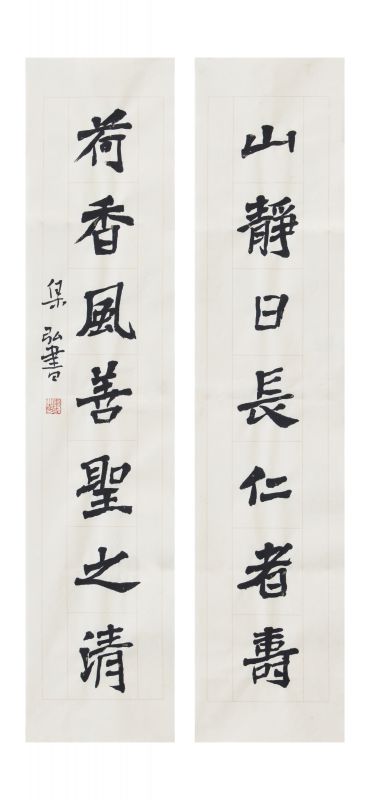 山靜日長仁者壽
荷香風善聖之清
集弘書